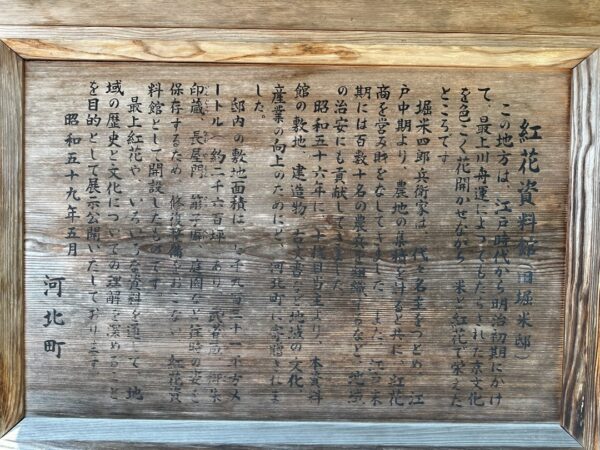 紅花資料館(旧堀米邸)
この地方は、江戸時代から明治初期にかけ
て、最上川舟運によってもたらされた京文化
を色こく花開かせながら 米と紅花で栄えた
ところです
堀米四郎兵衛家は 代々名主をつとめ 江
戸中期より、農地の集積をはかると共に 紅花
商を営み財をなしてきました また 江戸末
期には百数十名の農兵を組織するなど、地域
の治安にも貢献してきました
昭和五十六年に、十 代目当主より、本資料
館の敷地 建造物 古文書など地域の文化、
産業の向上のためにと、河北町に寄贈されま
した。
邸内の敷地面積は 千九百三十一平方メ
ートル 約二千六百坪 あり 武者蔵 御朱
印蔵、長屋門 第 庭園など往時の姿を
保存するため 修復整備をおこない 紅花資
料館として開設したものです。
最上紅花や、いろいろな資料を通して 地
域の歴史と文化についての理解を深めること
を目的として展示公開いたしております
昭和五十九年五月
河北町